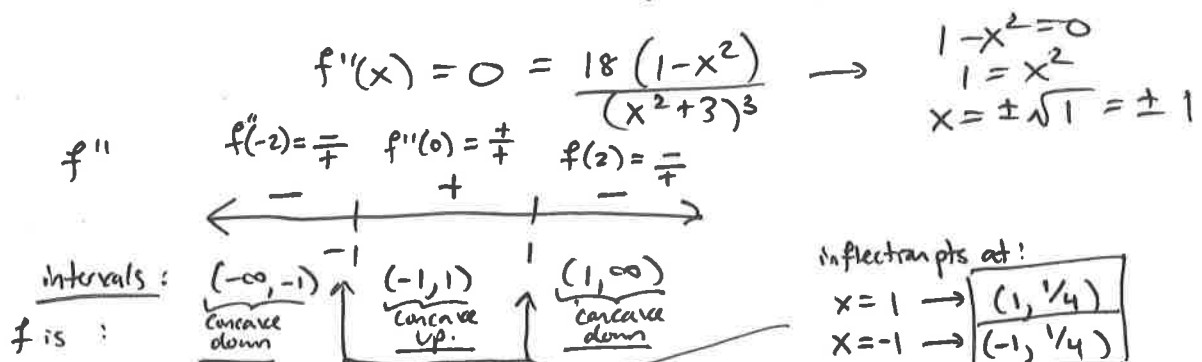 f''(x) = 0 = 18(1-x²)/(x²+3)³ → 1-x²=0
1 = x²
x = ±√1 = ±1
f'' f''(-2) = -/+ f''(0) = +/+ f(2) = -/+
- + -
-1 1
intervals: (-∞,-1) (-1,1) (1,∞)
f is : concave down concave up. concave down
inflection pts at:
x=1 → (1, 1/4)
x=-1 → (-1, 1/4)